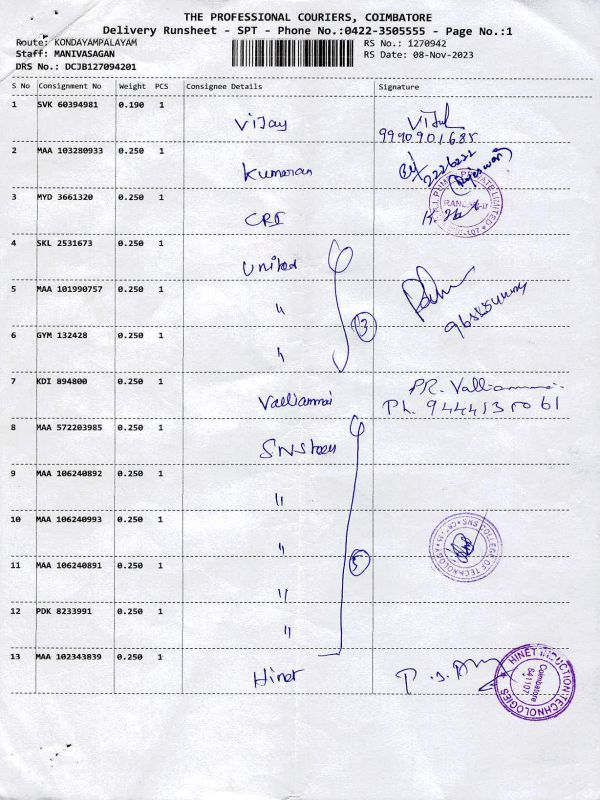 THE PROFESSIONAL COURIERS, COIMBATORE
Delivery Runsheet - SPT - Phone No.:0422-3505555 - Page No.:1
Route: KONDAYAMPALAYAM RS No.: 1270942
Staff: MANIVASAGAN RS Date: 08-Nov-2023
DRS No.: DCJB127094201
S No Consignment No Weight PCS Consignee Details Signature
1 SVK 60394981 0.190 1 Vijay
2 MAA 103280933 0.250 1 Kumaran
3 MYD 3661320 0.250 1 CRI
4 SKL 2531673 0.250 1 United
5 MAA 101990757 0.250 1 "
3
6 GYM 132428 0.250 1 "
7 KDI 894800 0.250 1 Valliammai PR. Valliammai
8 MAA 572203985 0.250 1 SNS
9 MAA 106240892 0.250 1 "
10 MAA 106240993 0.250 1 " SNS COLLEGE OF TECHNOLOGY
11 MAA 106240891 0.250 1 "
5
12 PDK 8233991 0.250 1 "
13 MAA 102343839 0.250 1 Hinet
HINET INDUCTION TECHNOLOGIES
Coimbatore
641107